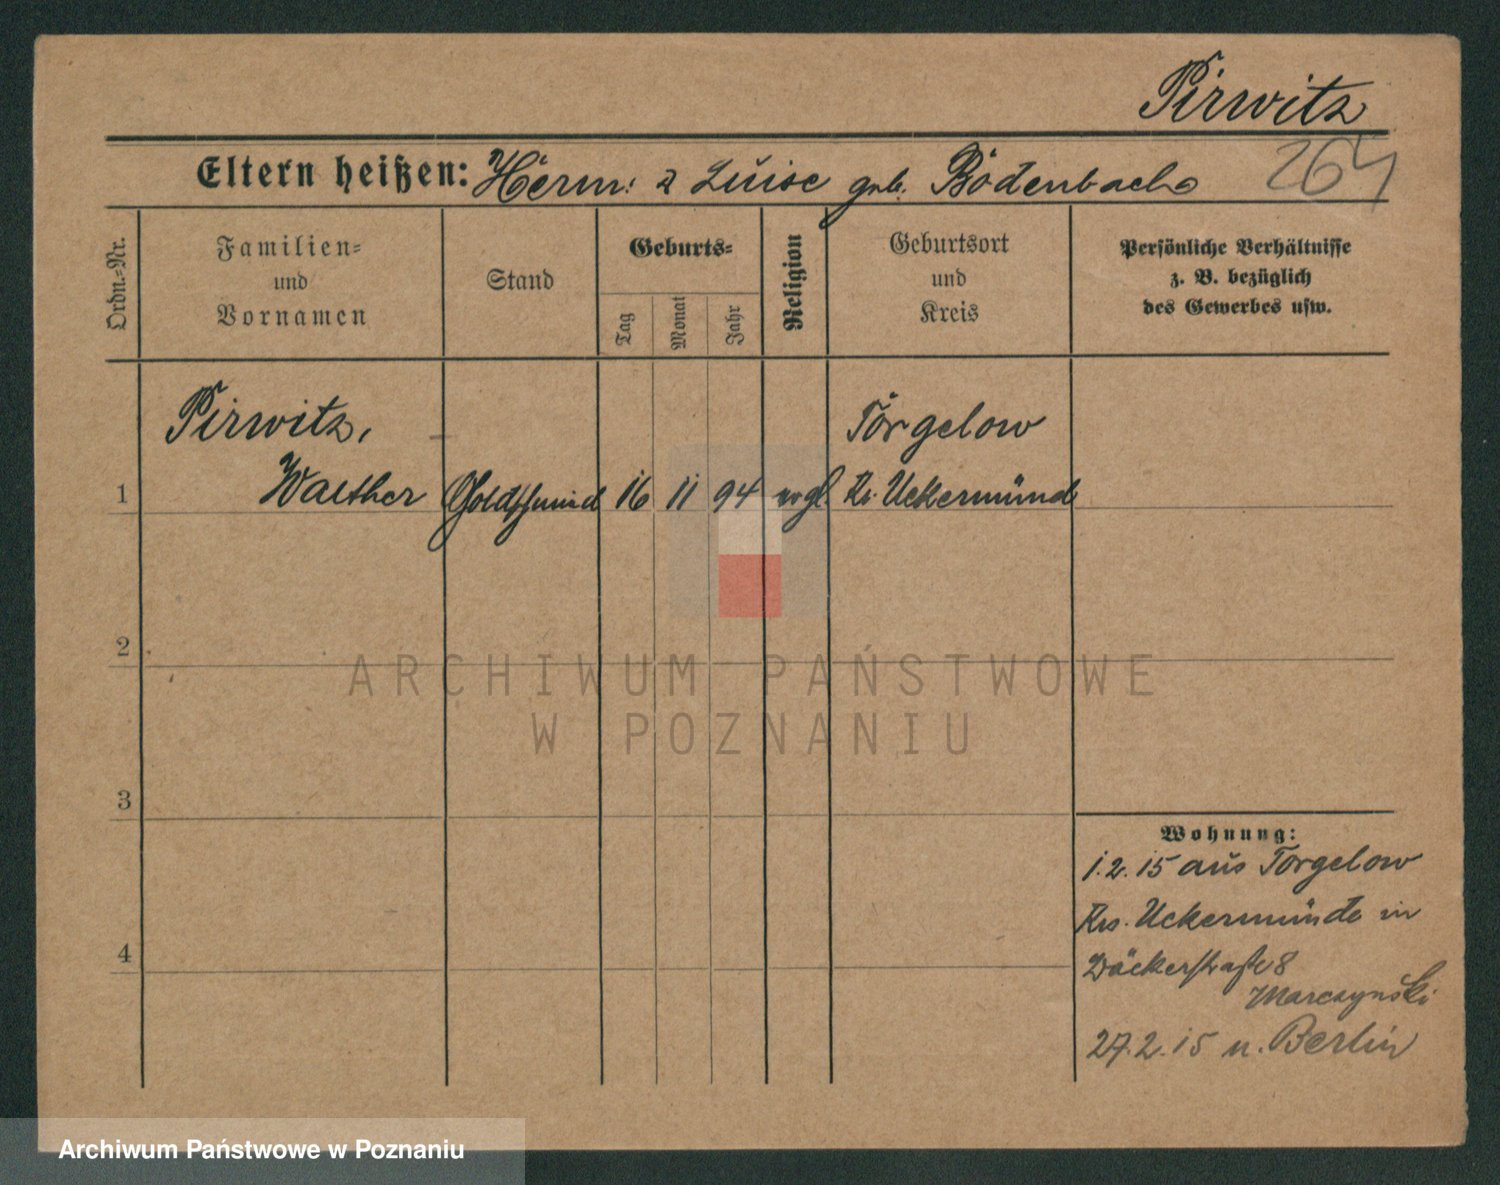 Pirwitz
Eltern heißen: Herm: & Luise geb. Bodenbach
264
Ordn.-Nr.
Familien-
und
Vornamen
Stand
Geburts-
Tag
Monat
Jahr
Religion
Geburtsort
und
Kreis
Persönliche Verhältnisse
z. B. bezüglich
des Gewerbes usw.
Pirwitz,
Torgelow
1 Walther Goldschmied 16 11 94 evgl Kr. Uckermünd
2
ARCHIWUM PAŃSTWOWE
W POZNANIU
3
Wohnung:
1.2.15 aus Torgelow
Krs. Uckermünde in
4
Bäckerstraße 8
Marczynski
27.2.15 n. Berlin
Archiwum Państwowe w Poznaniu